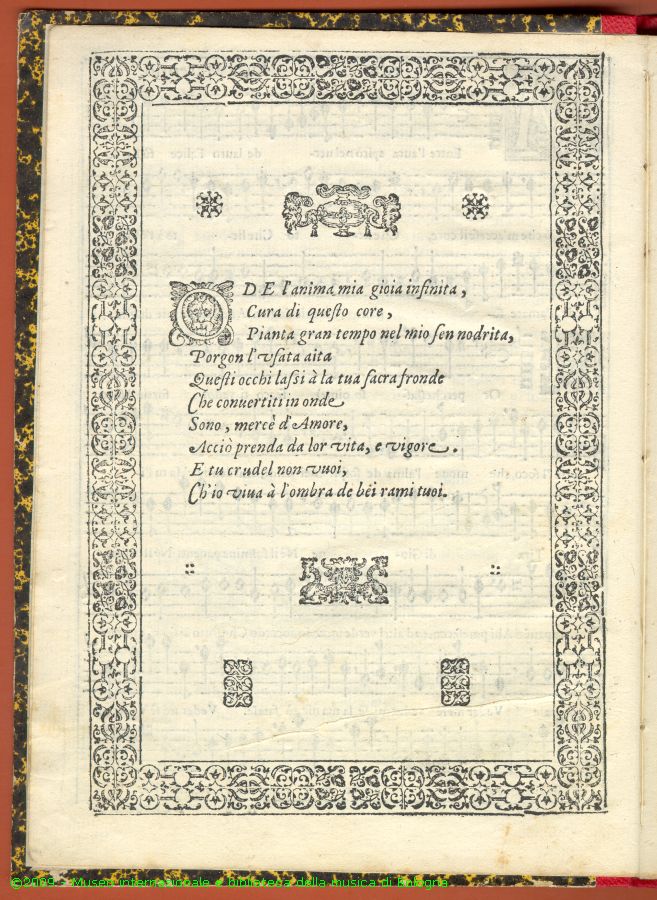 O DE l'anima mia gioia infinita,
Cura di questo core,
Pianta gran tempo nel mio sen nodrita,
Porgon l'vsata aita
Questi occhi lassi à la tua sacra fronde
Che conuertiti in onde
Sono, mercè d'Amore,
Acciò prenda da lor vita, e vigore.
E tu crudel non vuoi,
Ch'io viua à l'ombra de bei rami tuoi.
©2009 - Museo internazionale e biblioteca della musica di Bologna